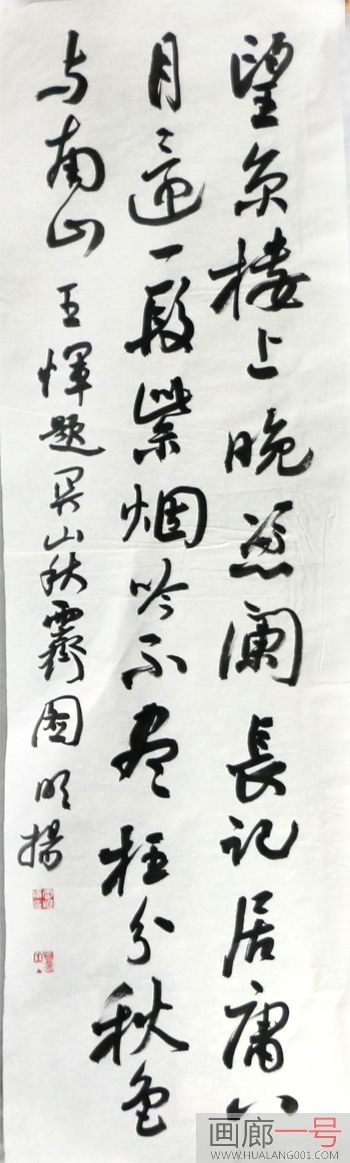 望京楼上晚凭阑長记居庸八
月還一段紫烟吟不尽枉分秋色
与南山 王惲题关山秋霽图 明揚
画廊一号
WWW.HUALANG001.COM